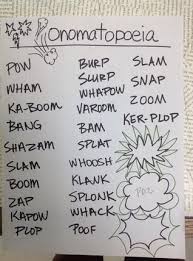 Onomatopoeia
POW
WHAM
KA-BOOM
BANG
SHAZAM
SLAM
BOOM
ZAP
KAPOW
PLOP
BURP
SLURP
WHAPOW
VAROOM
BAM
SPLAT
WHOOSH
KLANK
SPLONK
WHACK
POOF
SLAM
SNAP
ZOOM
KER-PLOP